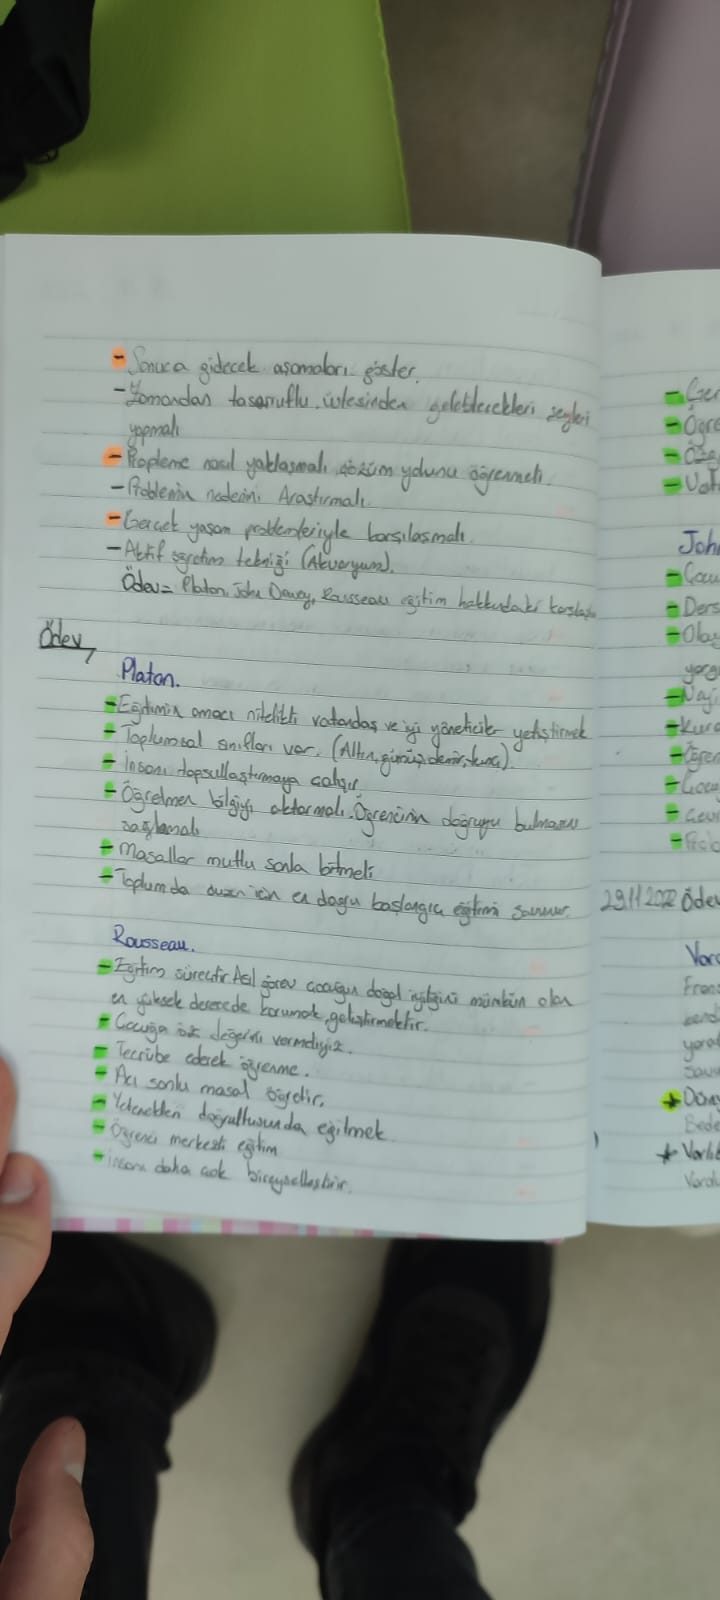 - Sonuca gidecek aşamaları göster.
- Zamandan tasarruflu, üstesinden gelebilecekleri şeyleri
yapmalı
- Propleme nasıl yaklaşmalı çözüm yolunu öğrenmeli.
- Problemin nedenini Araştırmalı.
- Gerçek yaşam problemleriyle karşılaşmalı.
- Aktif öğretim tekniği (Akvaryum).
Ödev= Platon, John Dewey, Rousseau eğitim hakkındaki
Ödev,
Platon.
- Eğitimin amacı nitelikli vatandaş ve iyi yöneticiler yetiştirmek
- Toplumsal sınıfları var. (Altın, gümüş, demir, tunç).
- İnsanı çalışır
- Öğretmen bilgiyi aktarmalı. Öğrencinin doğruyu bulmasını
sağlamalı
- Masallar mutlu sonla bitmeli
- Toplumda düzen için en doğru başlangıcı eğitimi savunur.
Rousseau.
- Eğitim süreçtir. Asıl görev çocuğun doğal iyiliğini mümkün olan
en yüksek derecede korumak, geliştirmektir.
- Çocuğa öz değerini vermeliyiz.
- Tecrübe ederek öğrenme.
- Acı sonlu masal öğretir.
- Yetenekleri doğrultusunda eğilmek
- Öğrenci merkezli eğitim
- İnsanı daha çok bireyselleştirir.
- Öğre
John
- Ders
- Olay
29.11.2022 Ödev